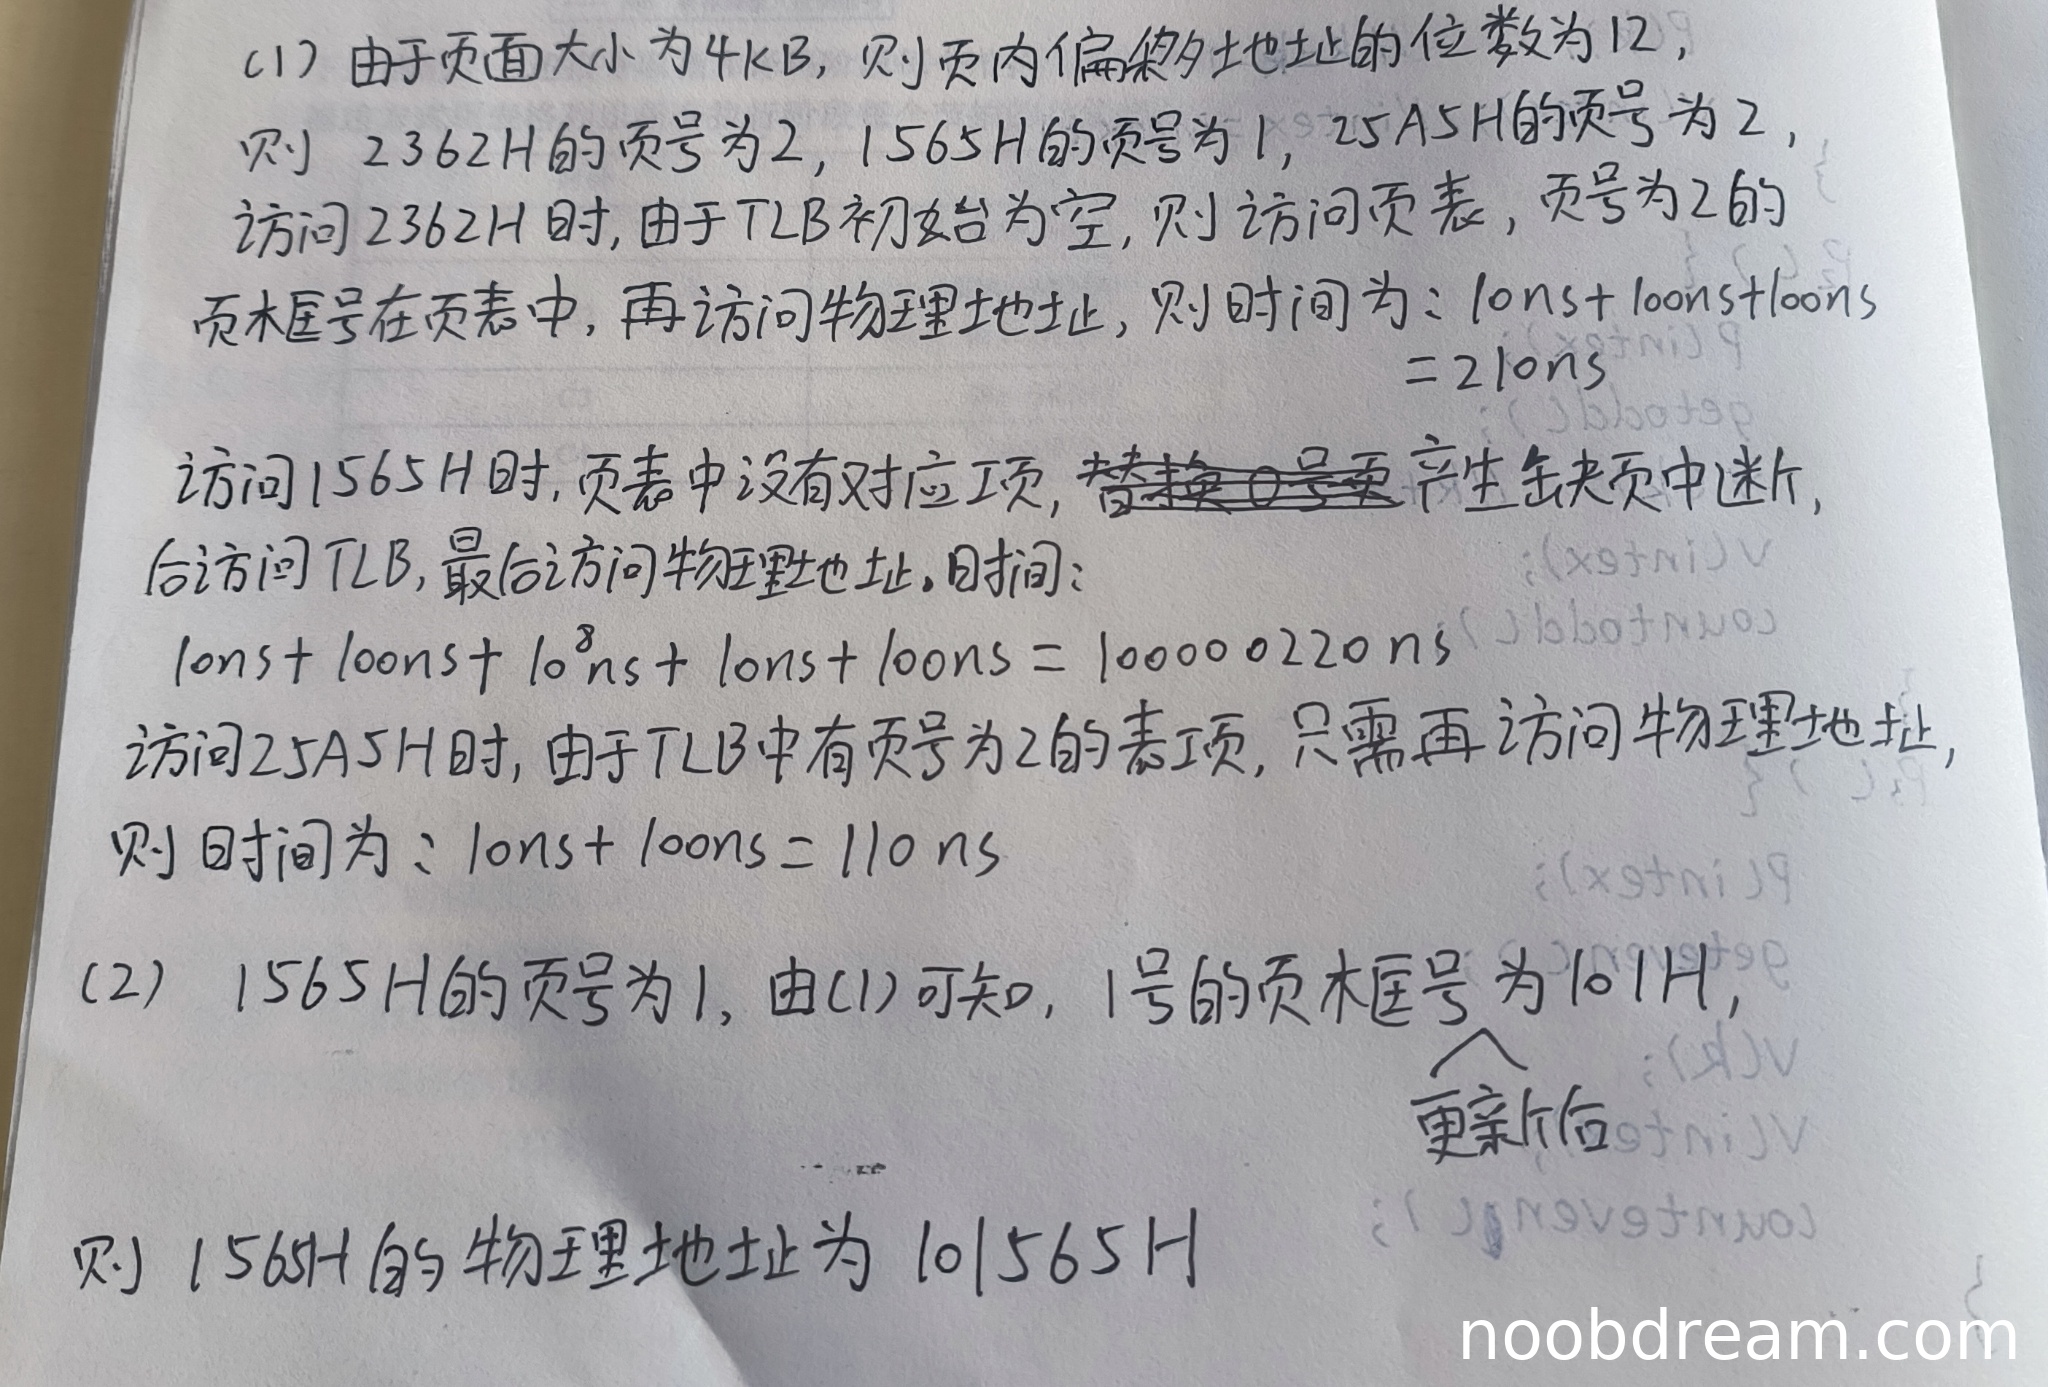 (1) 由于页面大小为4KB, 则页内偏移地址的位数为12,
则 2362H的页号为2, 1565H的页号为1, 25A5H的页号为2,
访问2362H时, 由于TLB初始为空, 则访问页表, 页号为2的
页框号在页表中, 再访问物理地址, 则时间为: 10ns+100ns+100ns
=210ns
访问1565H时, 页表中没有对应项, 替换0号页产生缺页中断,
后访问TLB, 最后访问物理地址。时间:
10ns+100ns+10⁸ns+10ns+100ns=100000220ns
访问25A5H时, 由于TLB中有页号为2的表项, 只需再访问物理地址,
则时间为: 10ns+100ns=110ns
(2) 1565H的页号为1, 由(1)可知, 1号的页框号为101H,
更新后
则 1565H的物理地址为 101565H
P(intex);
getodd();
V(intex);
countodd();
P(intex);
V(k);
counteven();
noobdream.com